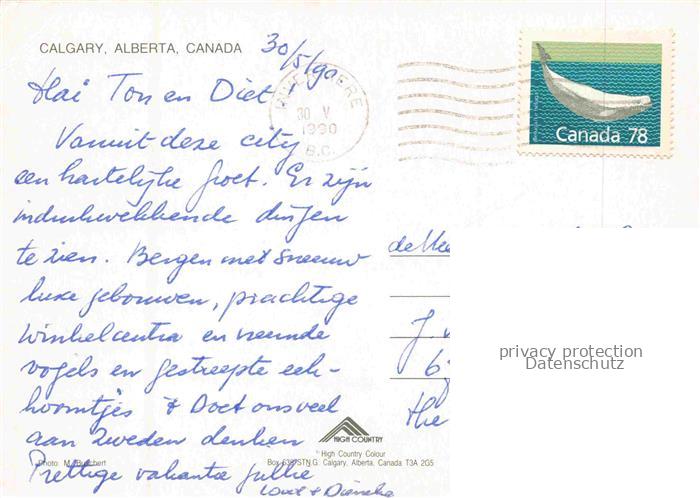 CALGARY, ALBERTA, CANADA
30/5/90
Hai Ton en Diet,
30 V
1990
B.C.
Canada 78
Vanuit deze city
een hartelijke groet. Er zijn
indrukwekkende dingen
te zien. Bergen met sneeuw
luxe gebouwen, prachtige
winkelcentra en vreemde
vogels en gestreepte eek-
hoorntjes & Doet ons veel
aan Zweden denken
Prettige vakantie jullie
de
J.
6
the
privacy protection
Datenschutz
HIGH COUNTRY
High Country Colour
STN G. Calgary, Alberta, Canada T3A 2G5
Photo: M.